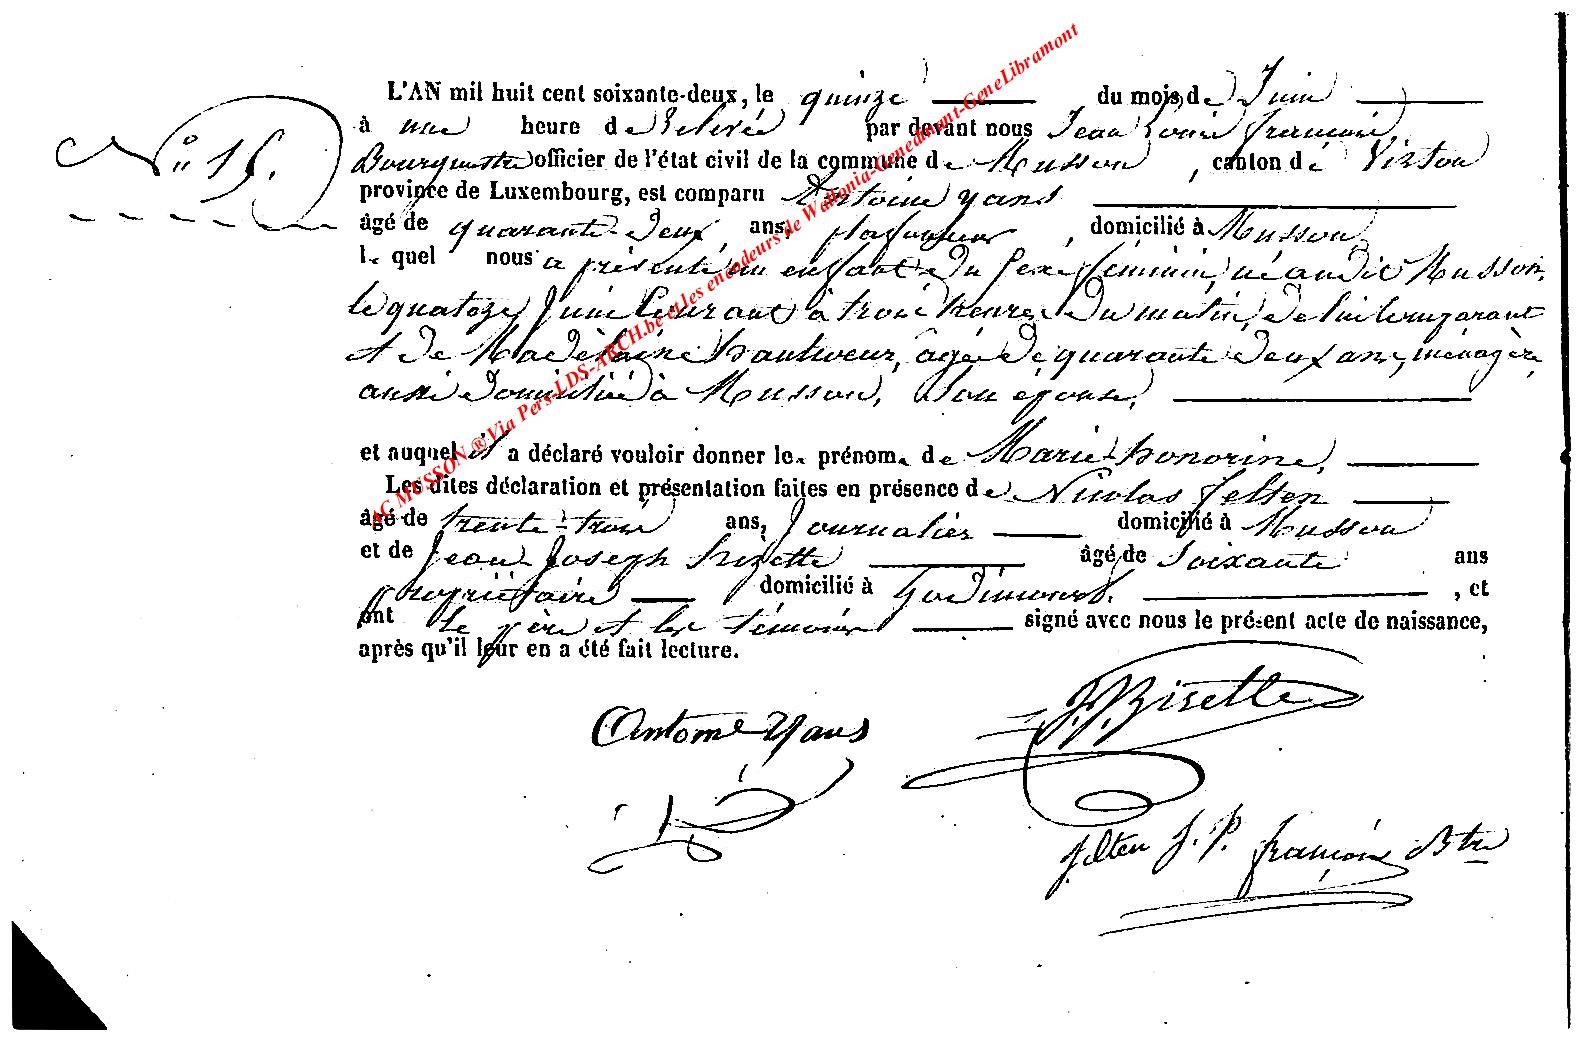 N° 15.
L'AN mil huit cent soixante-deux, le quinze du mois de Juin
à une heure de Relevée par devant nous Jean Louis françois
officier de l'état civil de la commune de Musson, canton de Virton
province de Luxembourg, est comparu Antoine yans
âgé de quarante-deux, ans, plafonneur, domicilié à Musson
le quel nous a présenté un enfant du sexe féminin, né audit Musson,
le quatorze Juin Courant à trois heures du matin, de lui Comparant
et de Madelaine hautweur, âgée de quarante deux ans, ménagère,
aussi domiciliée à Musson, Son épouse,
et auquel il a déclaré vouloir donner les prénoms de Marie-honorine,
Les dites déclaration et présentation faites en présence de Nicolas felten
âgé de trente-trois ans, Journalier domicilié à Musson
et de Jean Joseph bizette âgé de Soixante ans
propriétaire domicilié à Godincourt, et
ont le père et les témoins signé avec nous le présent acte de naissance,
après qu'il leur en a été fait lecture.
Antoine Yans
J. J. Bizette
felten J. P. françois Btre
AC MUSSON ® Via Pers-LDS-ARCH.be et les encodeurs de Wallonia-Genedinant-GeneLibramont